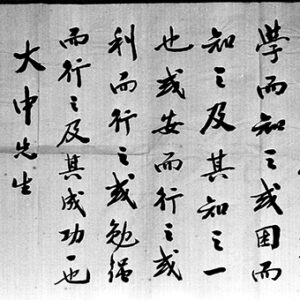 學而知之或困而
知之及其知之一
也或安而行之或
利而行之或勉強
而行之及其成功一也
大中先生